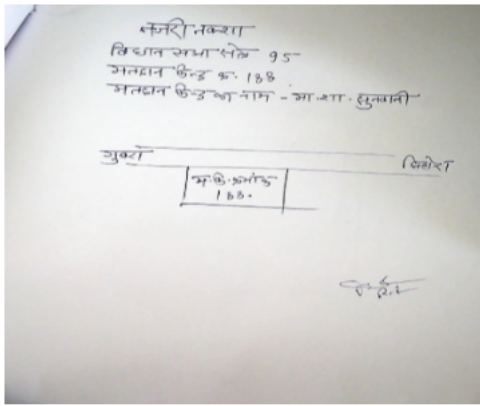 नजरी नक्शा
विधान सभा क्षेत्र 95
मतदान केन्द्र क्र. 188
मतदान केन्द्र का नाम - मा. शा. सुनवानी
गुबरा
सिहोरा
म. के. क्रमांक
188.